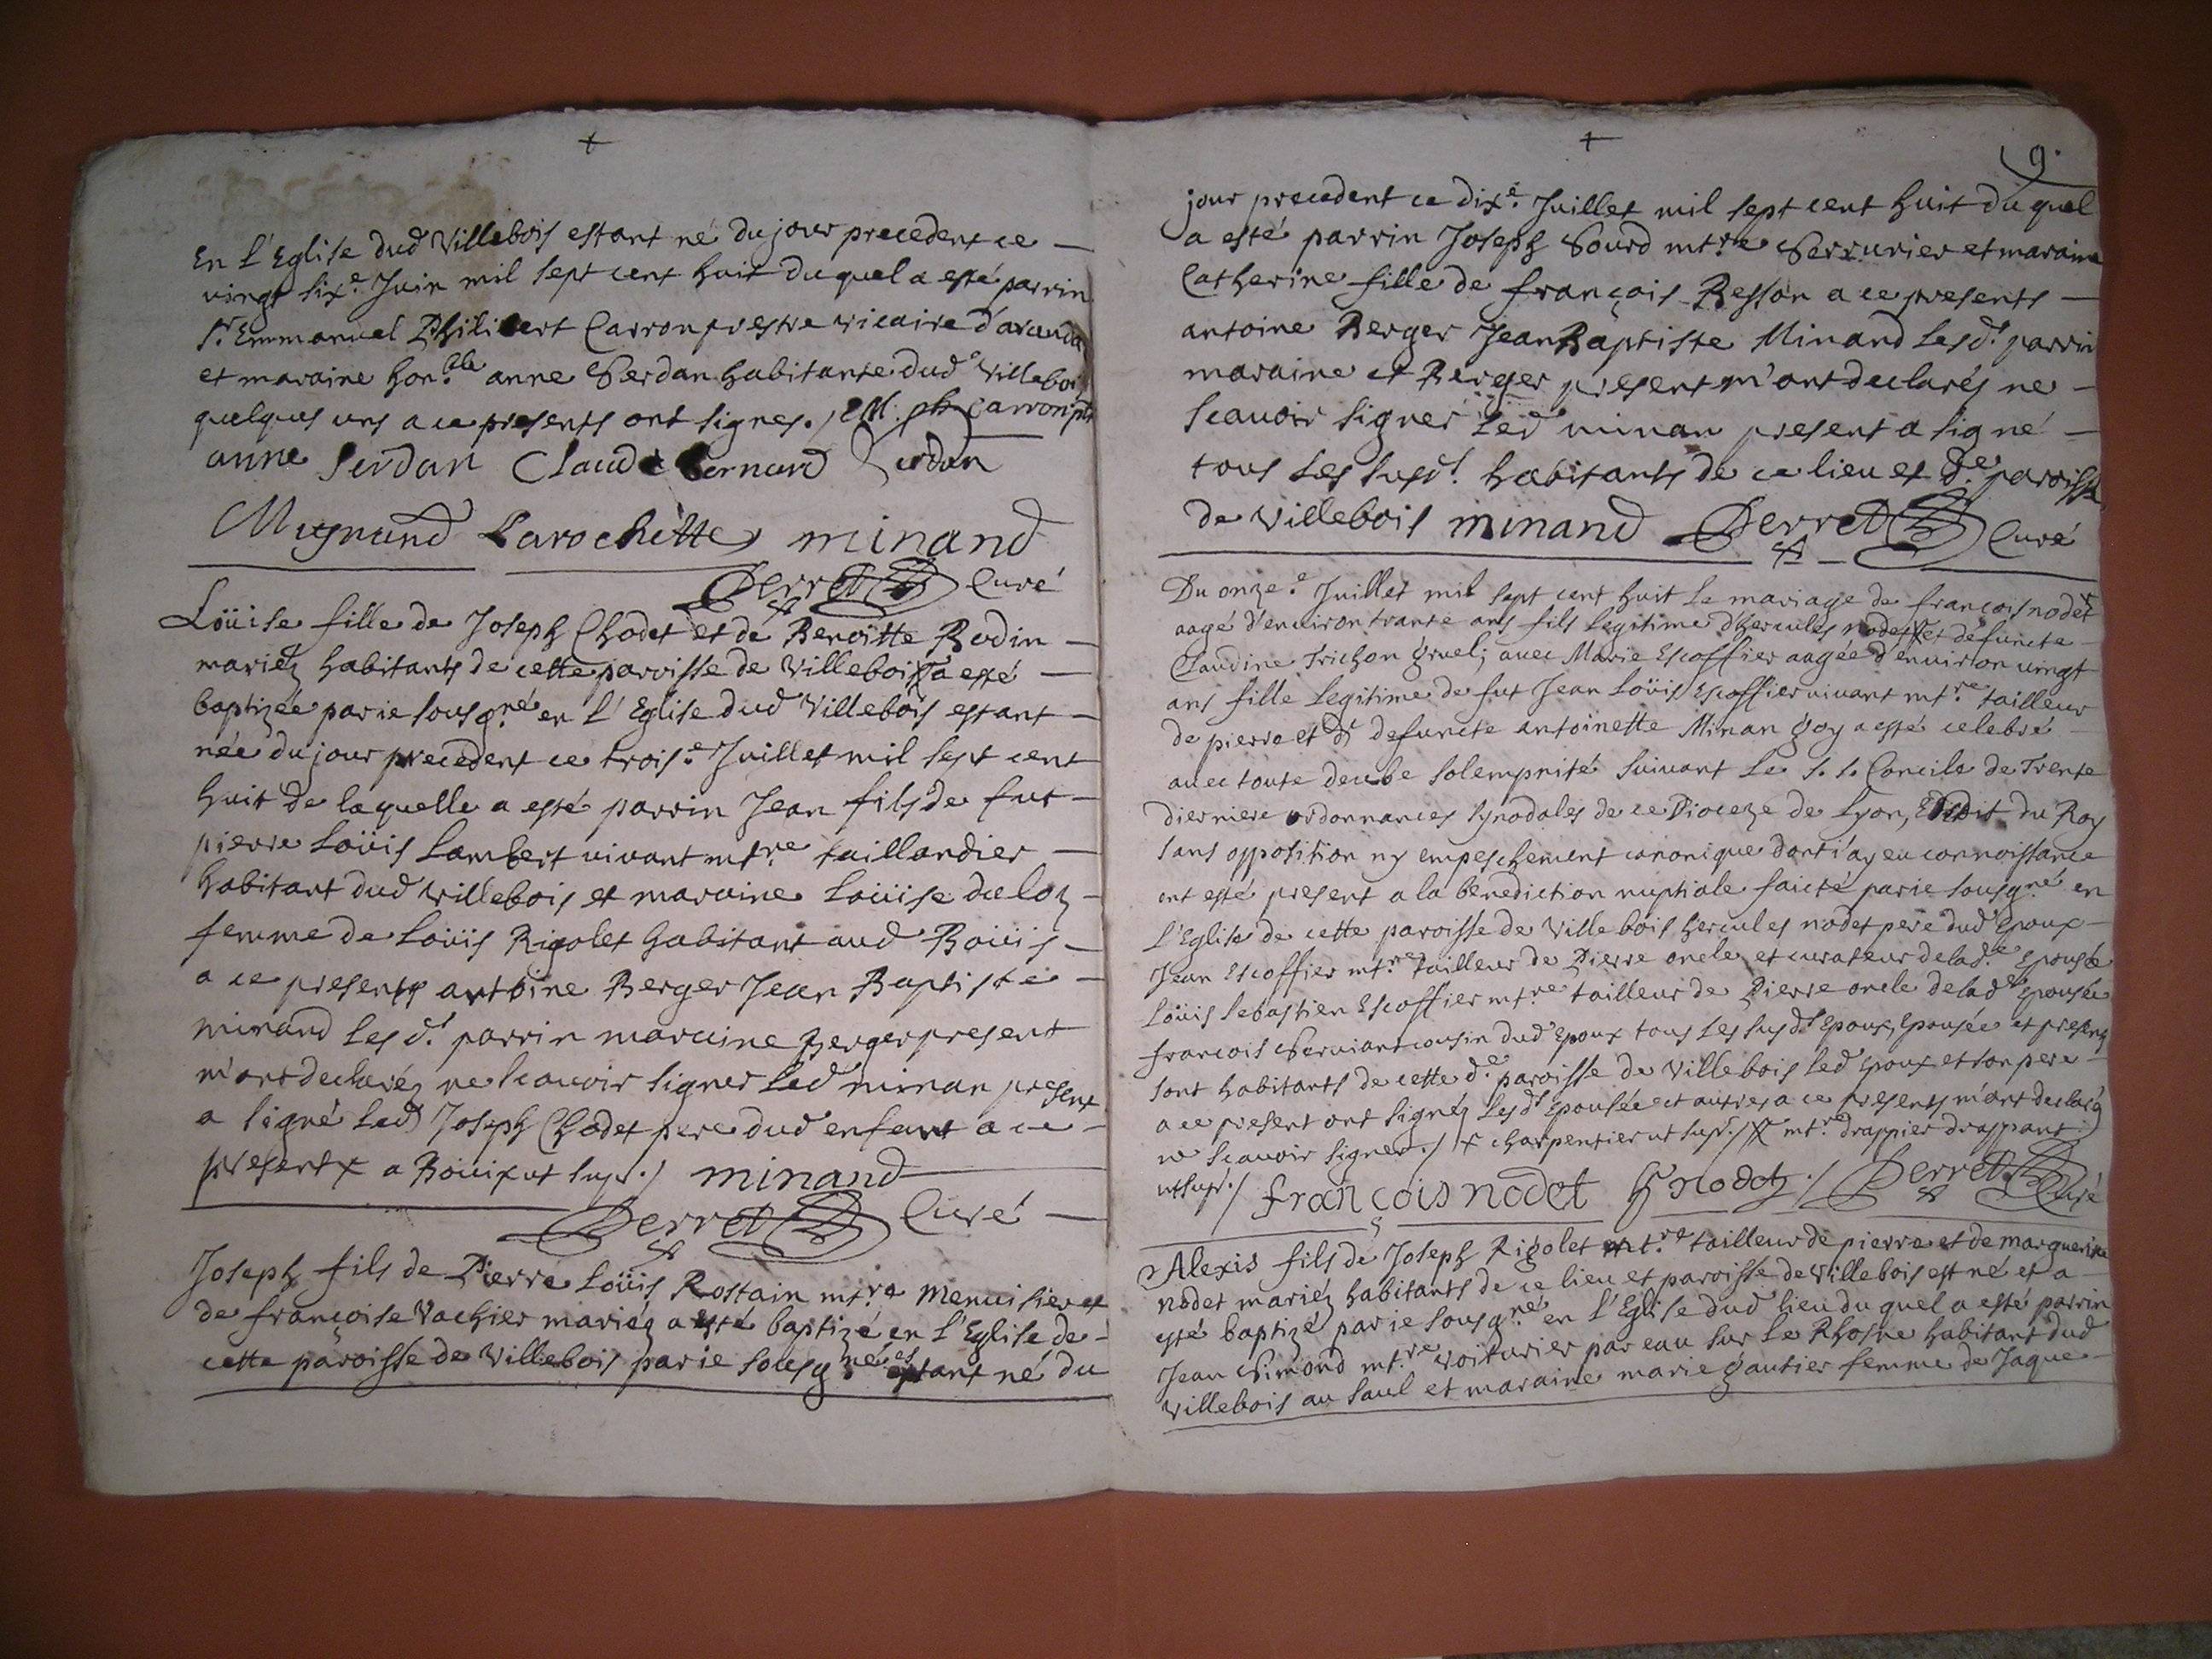 En l'Eglise dud Villebois estant né du jour precedent ce
vingt six.e Juin mil sept cent huit duquel a esté parrin
Sr Emmanuel Philibert Carron prestre vicaire d'aranda
et maraine hon.ble anne Serdan habitante dud Villebois
quelques uns a ce presents ont signes./ EM. ph Carron ptre
anne Serdan Claude Bernard Serdan
Mugnand Larochette minand
Perret Curé
Loüise fille de Joseph Chodet et de Benoitte Bodin
mariéz habitants de cette paroisse de Villebois x a esté
baptizée par ie sousg.né en l'Eglise dud Villebois estant
née du jour precedent ce trois.e Juillet mil sept cent
huit de laquelle a esté parrin Jean fils de fut
pierre Loüis Lambert vivant mt.re taillandier
habitant dud Villebois et maraine Loüise
femme de Loüis Rigolet habitant aud Boüis
a ce presents antoine Berger Jean Baptiste
minand les d.t parrin maraine Berger present
m'ont declaréz ne scauoir signer led minan present
a signé led Joseph Chodet pere dud enfant a ce
present x a Boüix ut supr./ minand
Perret Curé
Joseph fils de Pierre Loüis Rostain mt.re Menuisier et
de françoise Vachier mariéz a esté baptizé en l'Eglise de
cette paroisse de Villebois par ie sousg.né estant né du
9.
jour precedent ce dix.e Juillet mil sept cent huit du quel
a esté parrin Joseph Sourd mt.re Serrurier et maraine
Catherine fille de françois Besson a ce presents
antoine Berger Jean Baptiste Minand lesd.t parrin
maraine et Berger present m'ont declarés ne
scauoir signer led minan present a signé
tous les susd.t habitants de ce lieu et d.e paroisse
de Villebois minand Perret Curé
Du onze.e Juillet mil sept cent huit le mariage de françois nodet x
aagé d'enuiron trante ans fils legitime d'hercules nodet X et defuncte
Claudine Trichon gruel; auec Marie Escoffier aagée d'enuiron vingt
ans fille legitime de fut Jean Loüis Escoffier vivant mt.re tailleur
de pierre et d defuncte antoinette Minan goy a esté celebré
auec toute deube solempnité suiuant le S. S. Concile de Trente
dierniere ordonnances synodales de ce Dioceze de Lyon, Edit du Roy
sans opposition ny empeschement canonique dont i'ay eu connoissance
ont esté present a la benediction nuptiale faicte par ie sousg.né en
l'Eglise de cette paroisse de Villebois hercules nodet pere dud Epoux
Jean Escoffier mt.re tailleur de Pierre oncle et curateur de lad.e Epousée
Loüis Sebastien Escoffier mt.re tailleur de Pierre oncle de lad.e Epousée
francois Seruiant cousin dud Epoux tous les susd.t Epoux, Epousée et presents
sont habitants de cette d.e paroisse de Villebois led Epoux et son pere
a ce present ont signéz lesd.t Epousée et autres a ce presents m'ont declaréz
ne scauoir signer./ x charpentier ut supr./ X mt.re drappier drappant
ut supr./ françois nodet h nodet ./ Perret Curé
Alexis fils de Joseph Rigolet mt.re tailleur de pierre et de marguerite
nodet mariéz habitants de ce lieu et paroisse de Villebois est né et a
esté baptizé par ie sousg.né en l'Eglise dud lieu duquel a esté parrin
Jean Simond mt.re voiturier par eau sur le Rhosne habitant dud
Villebois au saul et maraine marie gautier femme de Jaque